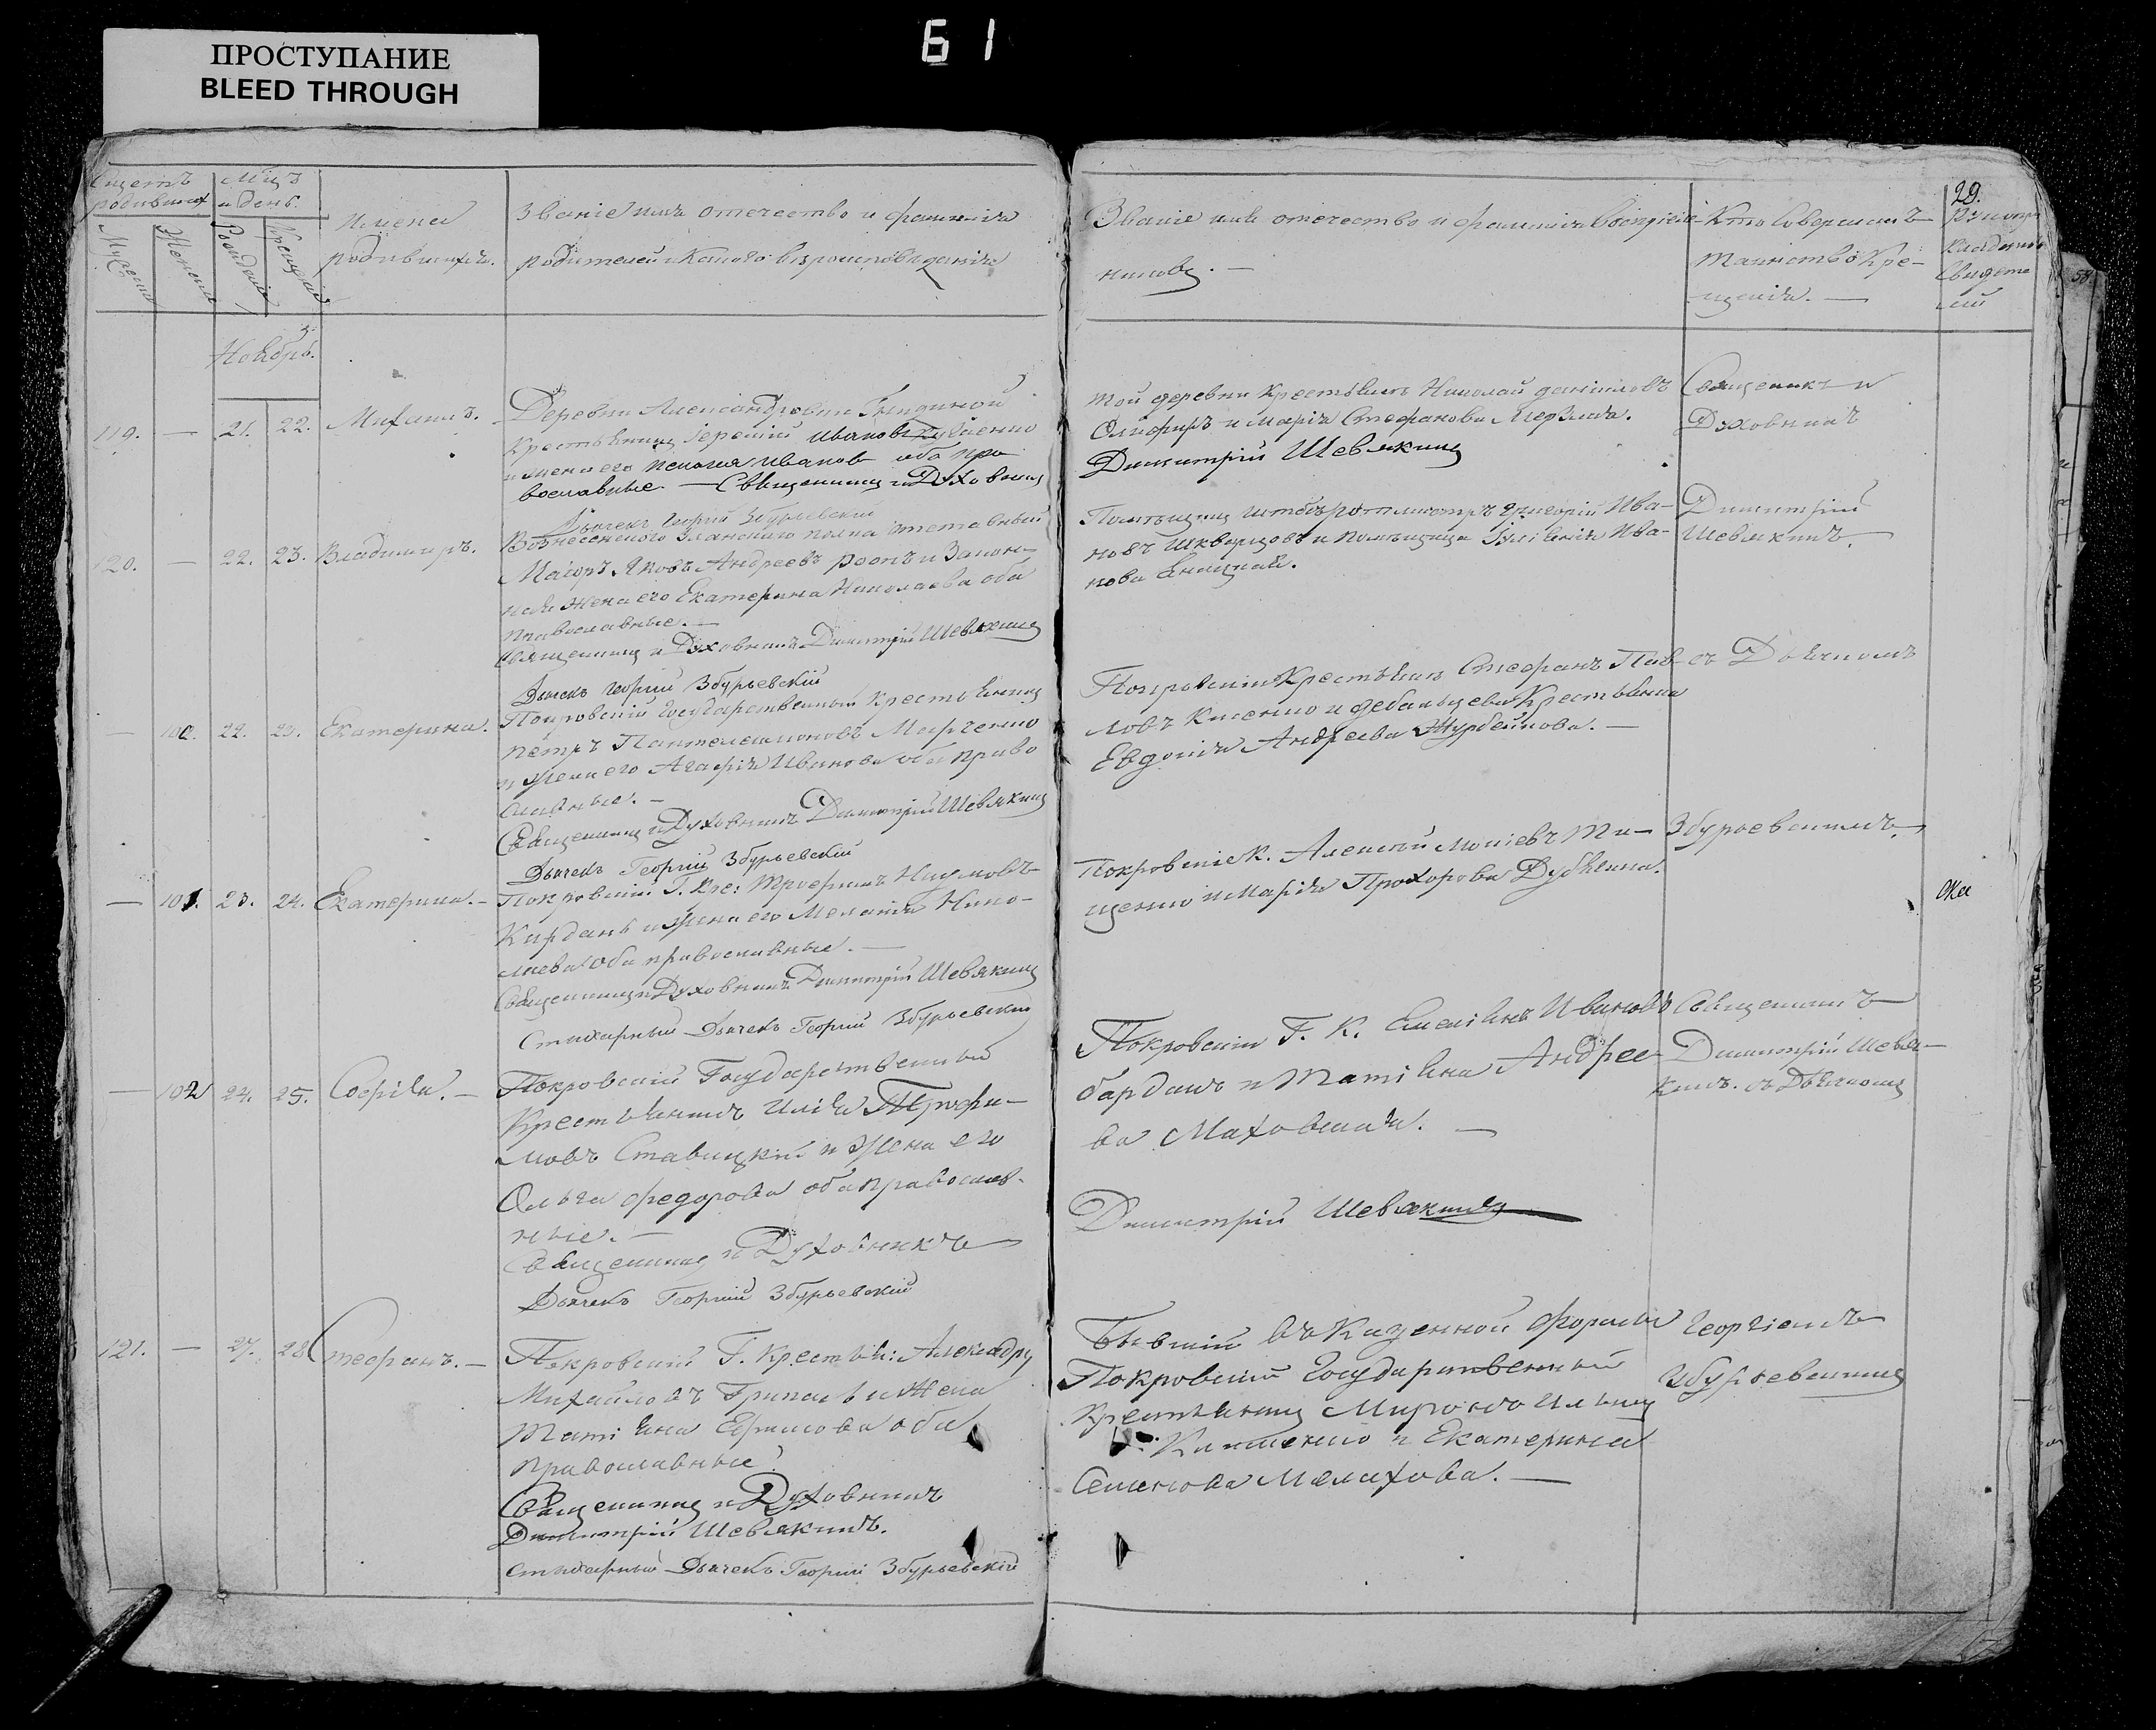 Б 1
ПРОСТУПАНИЕ
BLEED THROUGH
29.
Счетъ родившихся
Мѣцъ и день.
Имена родившихъ.
Званіе имя отечество и фамилія
родителей и какого вѣроисповѣданія
Мужеска
Женска
Рожденія
Крещенія
Званіе имя отечество и фамилія воспріем-
никовъ.
Кто совершалъ
таинство Кре-
щенія.
Рукопри
кладство
свидете
лей
Ноябрь.
119. — 21. 22. Михаилъ.
Деревни Александровки
Крестьянинъ Иванов
и жена его Иванов оба пра
вославные. — Священникъ и Духовникъ
той деревни Крестьянинъ Николай Даниловъ
и Марія Стефанова
Димитрій Шевякинъ
Священникъ и
Духовникъ
Дьячекъ Георгій Збурьевскій
120. — 22. 23. Владимиръ.
Вознесенского Уланского полка отставный
Маіоръ Яковъ Андреевъ и Закон-
ная Жена его Екатерина Николаева оба
православные. —
Священникъ и Духовникъ Димитрій Шевякинъ
Помѣщикъ штабъ ротмистръ Григорій Ива-
новъ Шкварцовъ и помѣщица Ива-
нова
Димитрій
Шевякинъ.
Дьячекъ Георгій Збурьевскій
— 100. 22. 23. Екатерина.
Покровскій Государственный крестьянинъ
Петръ Пантелеимоновъ Марченко
и жена его Агафія Иванова оба право
славные. —
Священникъ и Духовникъ Димитрій Шевякинъ
Покровскій Крестьянинъ Стефанъ Пав-
ловъ Кисенко и Крестьянка
Евдокія Андреева Журбейкова. —
съ Дьячкомъ
Дьячекъ Георгій Збурьевскій
— 101. 23. 24. Екатерина. —
Покровскій Г. Кре: Трофимъ Наумовъ
Кирданъ и жена его Меланія Нико-
лаева оба православные. —
Священникъ и Духовникъ Димитрій Шевякинъ
Стихарный Дьячекъ Георгій Збурьевскій
Покровскіе К. Алексій Ти-
щенко и Марія Прохорова Дубѣкина.
Збурьевскимъ
— 102 24. 25. Софія. —
Покровскій Государственный
Крестьянинъ Илія Трофи-
мовъ Ставицкій и Жена его
Ольга Федорова оба православ-
ные. —
Священникъ и Духовникъ
Дьячекъ Георгій Збурьевскій
Покровскій Г. К. Емеліянъ Ивановъ
Барданъ и Татіяна Андрее-
ва Маховская. —
Димитрій Шевякинъ
Священникъ
Димитрій Шевя-
кинъ. съ Дьячкомъ
121. — 27. 28. Стефанъ. —
Покровскій Г. Крестьян: Александръ
Михайловъ и Жена
Татіяна Ефимова оба
православные.
Священникъ и Духовникъ
Димитрій Шевякинъ.
Стихарный Дьячекъ Георгій Збурьевскій
Бывшій въ Казенной
Покровскій Государственный
Крестьянинъ Миронъ
и Екатерина
Семенова Малахова. —
Георгіемъ
Збурьевскимъ